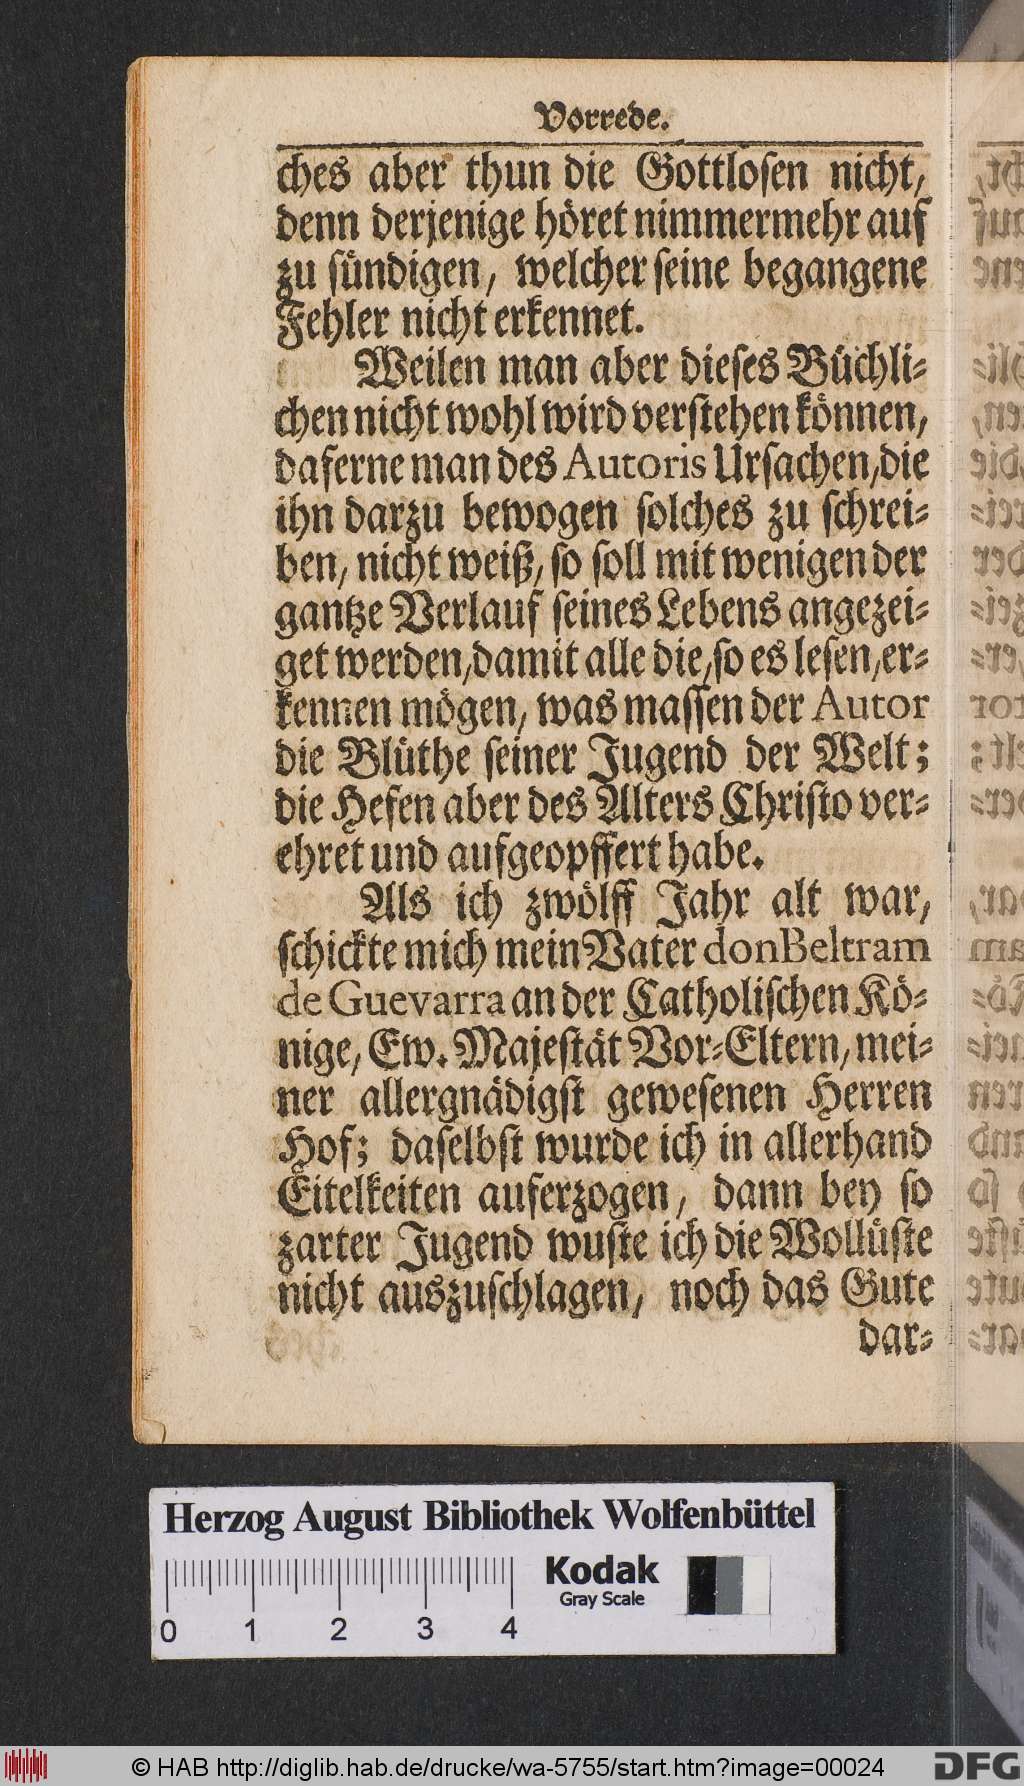 Vorrede.
ches aber thun die Gottlosen nicht,
denn derjenige höret nimmermehr auf
zu sündigen, welcher seine begangene
Fehler nicht erkennet.
Weilen man aber dieses Büchli-
chen nicht wohl wird verstehen können,
daferne man des Autoris Ursachen, die
ihn darzu bewogen solches zu schrei-
ben, nicht weiß, so soll mit wenigen der
gantze Verlauf seines Lebens angezei-
get werden, damit alle die, so es lesen, er-
kennen mögen, was massen der Autor
die Blüthe seiner Jugend der Welt;
die Hefen aber des Alters Christo ver-
ehret und aufgeopffert habe.
Als ich zwölff Jahr alt war,
schickte mich mein Vater don Beltram
de Guevarra an der Catholischen Kö-
nige, Ew. Majestät Vor-Eltern, mei-
ner allergnädigst gewesenen Herren
Hof; daselbst wurde ich in allerhand
Eitelkeiten auferzogen, dann bey so
zarter Jugend wuste ich die Wollüste
nicht auszuschlagen, noch das Gute
dar-
Herzog August Bibliothek Wolfenbüttel
Kodak
Gray Scale
0 1 2 3 4
© HAB http://diglib.hab.de/drucke/wa-5755/start.htm?image=00024
DFG